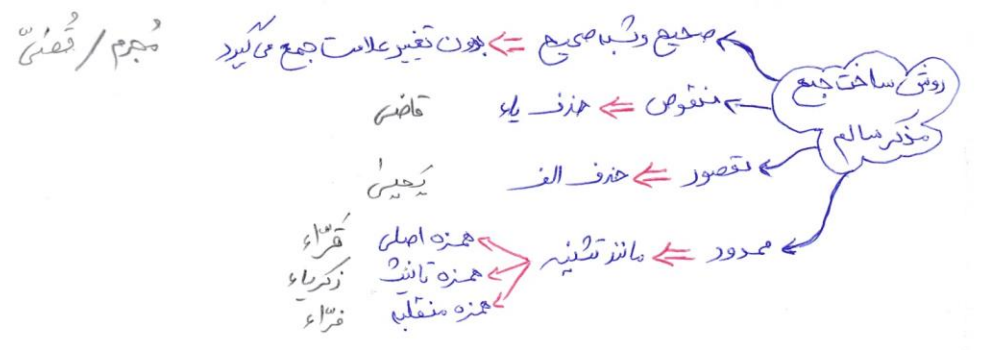 روش ساخت جمع
مذکر سالم
صحیح و شبه صحیح ⇐ بدون تغییر علامت جمع می‌گیرد مُجرِم / قُصَیّ
منقوص ⇐ حذف یاء قاضی
مقصور ⇐ حذف الف یَحییٰ
ممدود ⇐ مانند تثنیه
همزه اصلی قَرّاء
همزه تانیث زکریاء
همزه منقلبه فرّاء